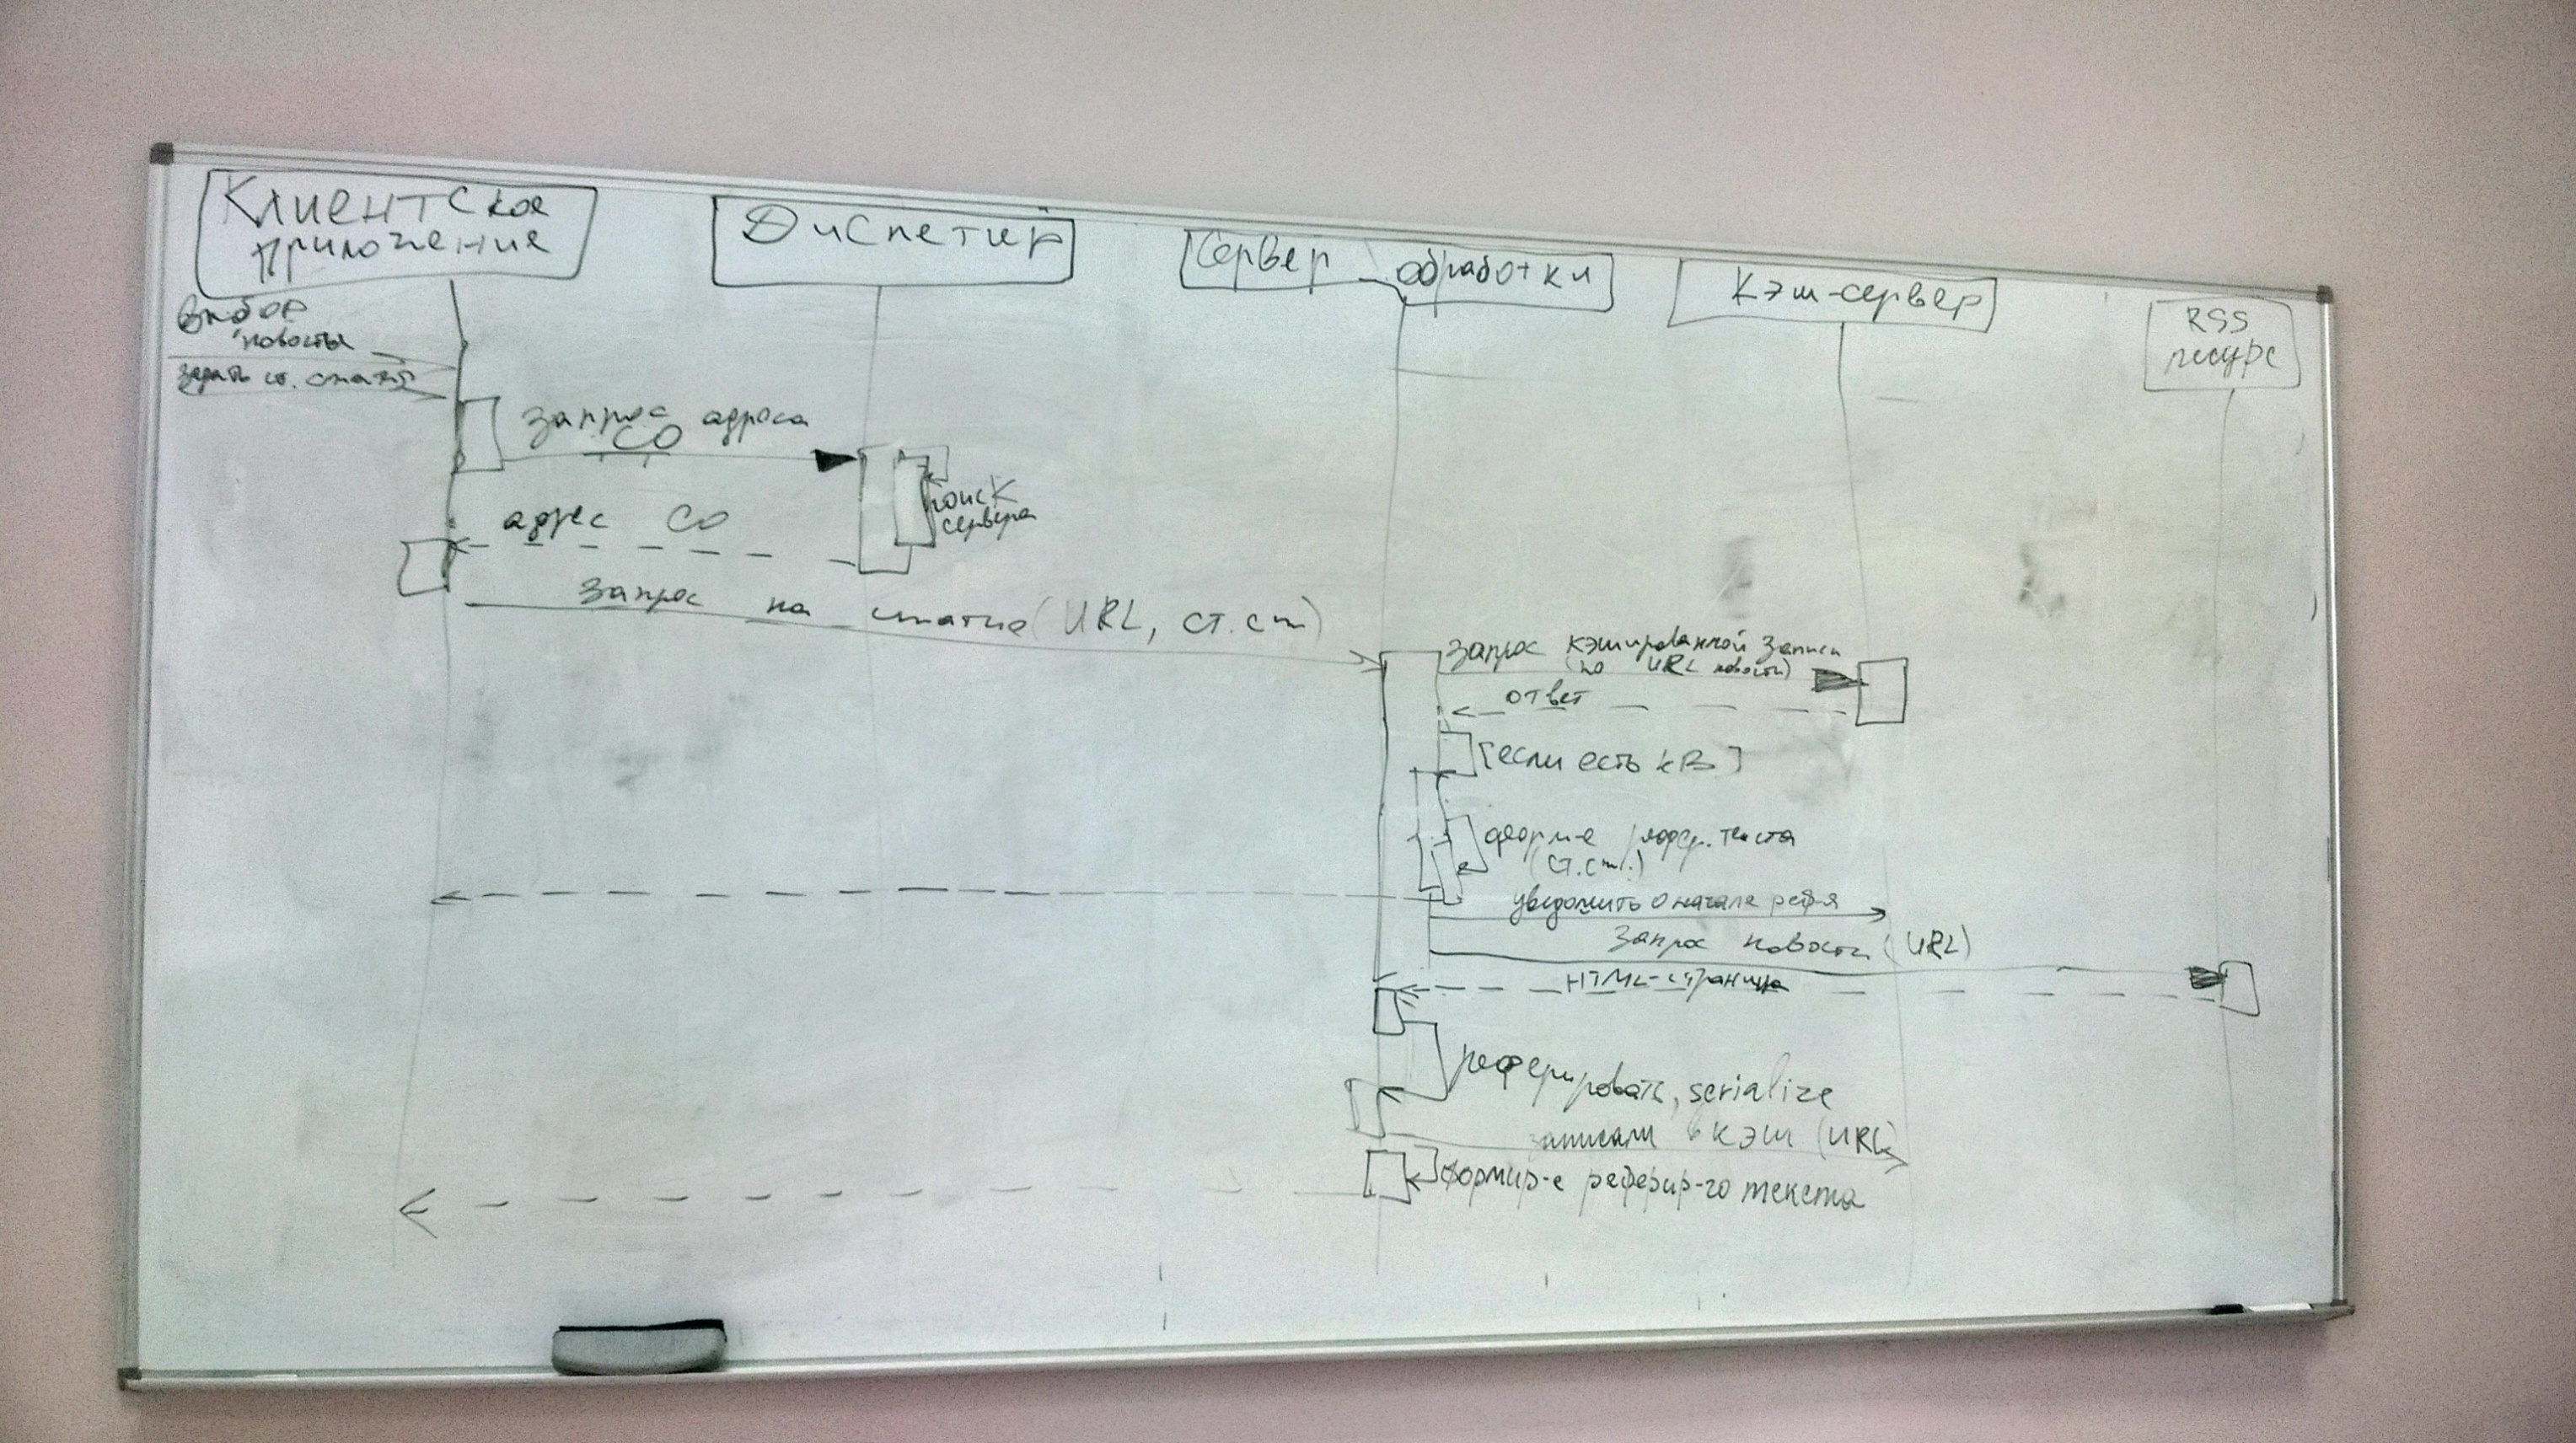 Клиентское
приложение
Диспетчер
Сервер обработки
Кэш-сервер
RSS
ресурс
выбор
новости
задать ст. сжатия
запрос адреса
СО
поиск
сервера
адрес СО
запрос на сжатие (URL, ст. сж)
запрос кэшированной записи
(по URL новости)
ответ
[если есть КВ]
форм-е рефер. текста
(ст. сж.)
уведомить о начале реф-я
запрос новости (URL)
HTML-страница
реферировать, serialize
записали в кэш (URL)
формир-е реферир-го текста